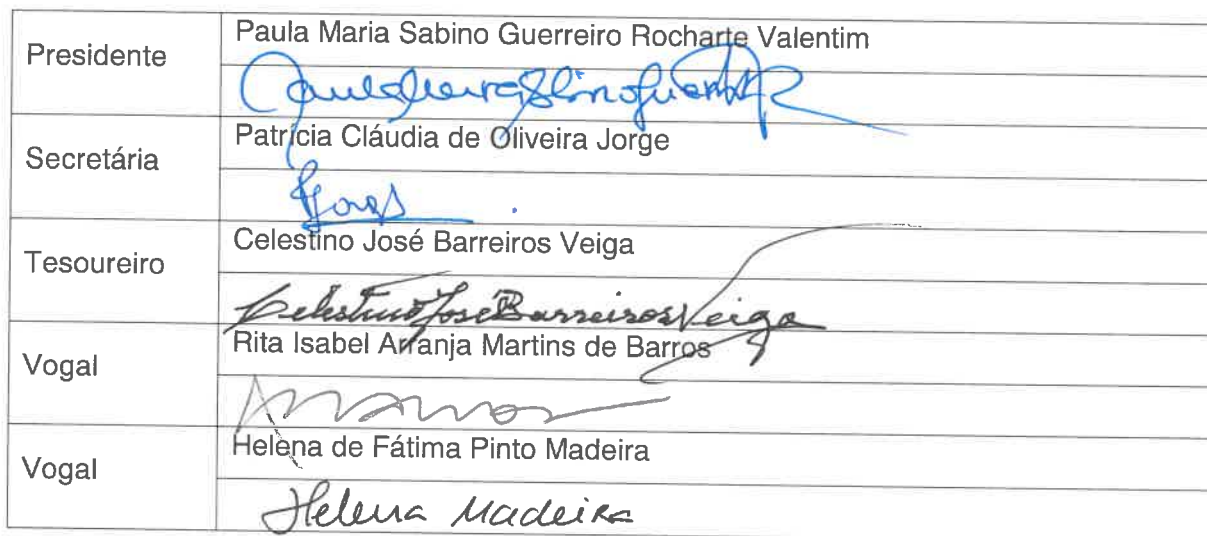 Presidente
Paula Maria Sabino Guerreiro Rocharte Valentim
Secretária
Patrícia Cláudia de Oliveira Jorge
Jorge
Tesoureiro
Celestino José Barreiros Veiga
Celestino José Barreiros Veiga
Vogal
Rita Isabel Arranja Martins de Barros
Vogal
Helena de Fátima Pinto Madeira
Helena Madeira